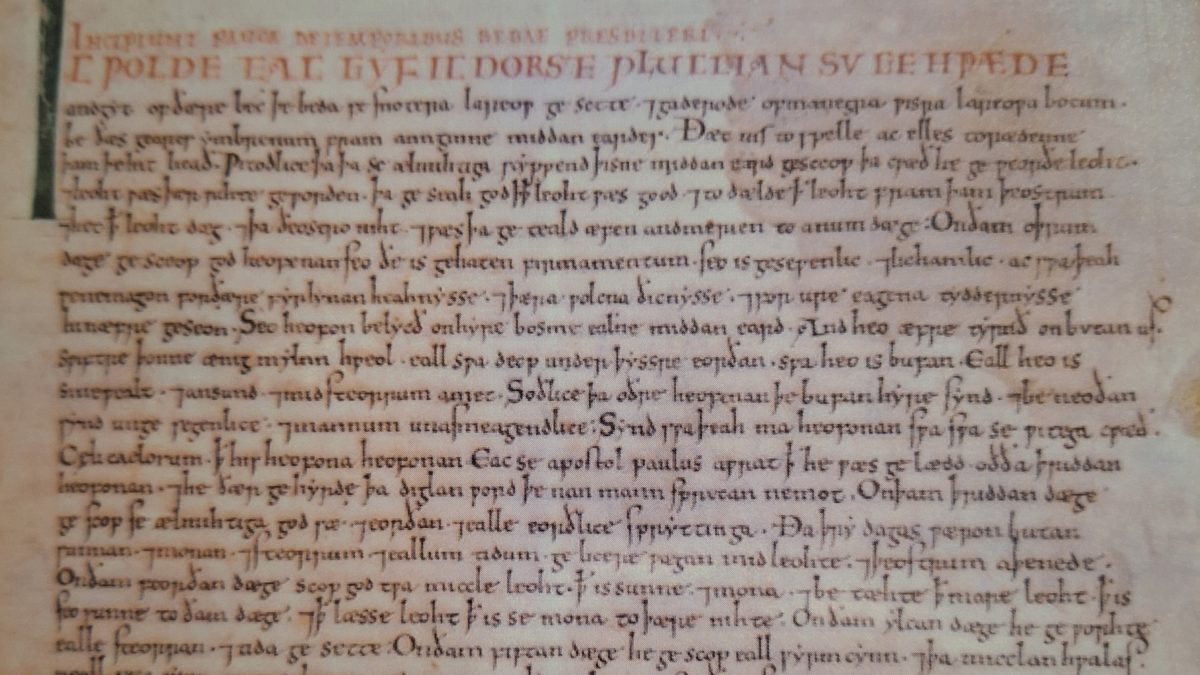 INCIPIUNT PAUCA DE TEMPORIBUS BEDAE PRESBITERI
IC ǷOLDE EAC GYF IC DORSTE PLUCCIAN SV GEHǷÆDE
andgyt of ðære bec þe beda se snotera lareoƿ ge sette · ⁊ gaderode of manegra ƿisra lareoƿa bocum ·
be ðæs geares ymbrenum fram annginne middan eardes · Ðæt nis to spelle ac elles to rædenne
þam þe hit licað · Ƿitodlice þa þa se ælmihtiga scyppend þisne middan eard gesceop þa cƿæð he ge ƿeorðe leoht ·
⁊ leoht ƿæs þær rihte geƿorden · þa ge seah god ꝥ ꝥ leoht ƿæs good · ⁊ to dælde ꝥ leoht fram þam þeostrum
⁊ het ꝥ leoht dæg · ⁊ þa ðeostro niht · ⁊ ƿæs þa ge teald æfen and merien to anum dæge : On ðam oþrum
dæge ge sceop god heofenan seo ðe is gehaten firmamentum · seo is geseƿenlic · ⁊ lichamlic · ac sƿa þeah
ƿe ne magon for ðære fyrlynan heahnysse · ⁊ þæra ƿolcna ðicnysse · ⁊ for ure eagena tyddernysse
hi næfre geseon · Seo heofon belycð on hyre bosme ealne middan eard · And heo æfre tyrnð on butan us ·
sƿiftre þonne ænig mylnn hƿeol · eall sƿa deop under þyssre eorðan · sƿa heo is bufan · Eall heo is
sineƿealt · ⁊ ansund · ⁊ mid steorrum amet · Soðlice þa oðre heofenan þe bufan hyre synd · ⁊ be neoðan
synd unge segenlice · ⁊ mannum unasmeagendlice : Synd sƿa þeah ma heofonan sƿa sƿa se ƿitega cƿæð ·
Celi caelorum · ꝥ his heofona heofonan Eac se apostol paulus aƿrat ꝥ he ƿæs ge lædd · oð ða þriddan
heofonan · ⁊ he ðær ge hyrde þa diglan ƿord þe nan mann sprecan ne mot · On þam þriddan dæge
ge scop se ælmihtiga god sæ · ⁊ eorðan · ⁊ ealle eorðlice spryttinga · Ða þry dagas ƿæron butan
sunnan · ⁊ monan · ⁊ steorrum ⁊ eallum tidum · ge licere ƿagan mid leohte · ⁊ þeostrum aþenede ·
On ðam feorðan dæge scop god tƿa miccle leoht · ꝥ is sunne · ⁊ mona · ⁊ be tæhte ꝥ mare leoht · ꝥ is
seo sunne to ðam dæge · ⁊ ꝥ læsse leoht ꝥ is se mona to þære nihte · On ðam ylcan dæge he ge ƿorhte
ealle steorran · ⁊ tida ge sette · On ðam fiftan dæge he ge scop eall ƿyrmcynn · ⁊ þa micclan hƿalas ·